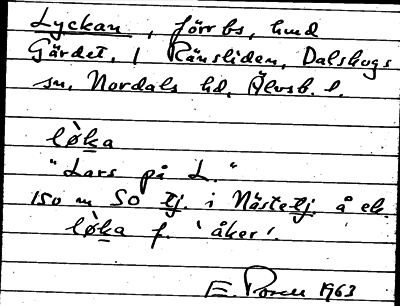 Lyckan, förrbs, hmd
Gärdet, 1 Ränsliden, Dalskogs
sn, Nordals hd, Älvsb. l.
lò̀ka
"Lars på L."
150 m SO tj. i Nästetj. å ek.
lò̀ka f. 'åker'.
E. 1963